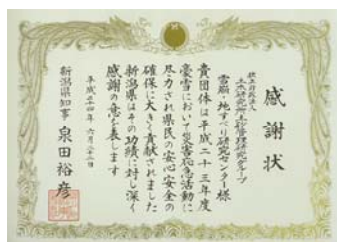 感謝状
独立行政法人
土木研究所土砂管理研究グループ
雪崩・地すべり研究センター様
貴団体は平成二十三年度
豪雪において災害応急活動に
尽力され県民の安心安全の
確保に大きく貢献されました
新潟県はその功績に対し深く
感謝の意を表します
平成二十四年六月二十二日
新潟県知事 泉田裕彦